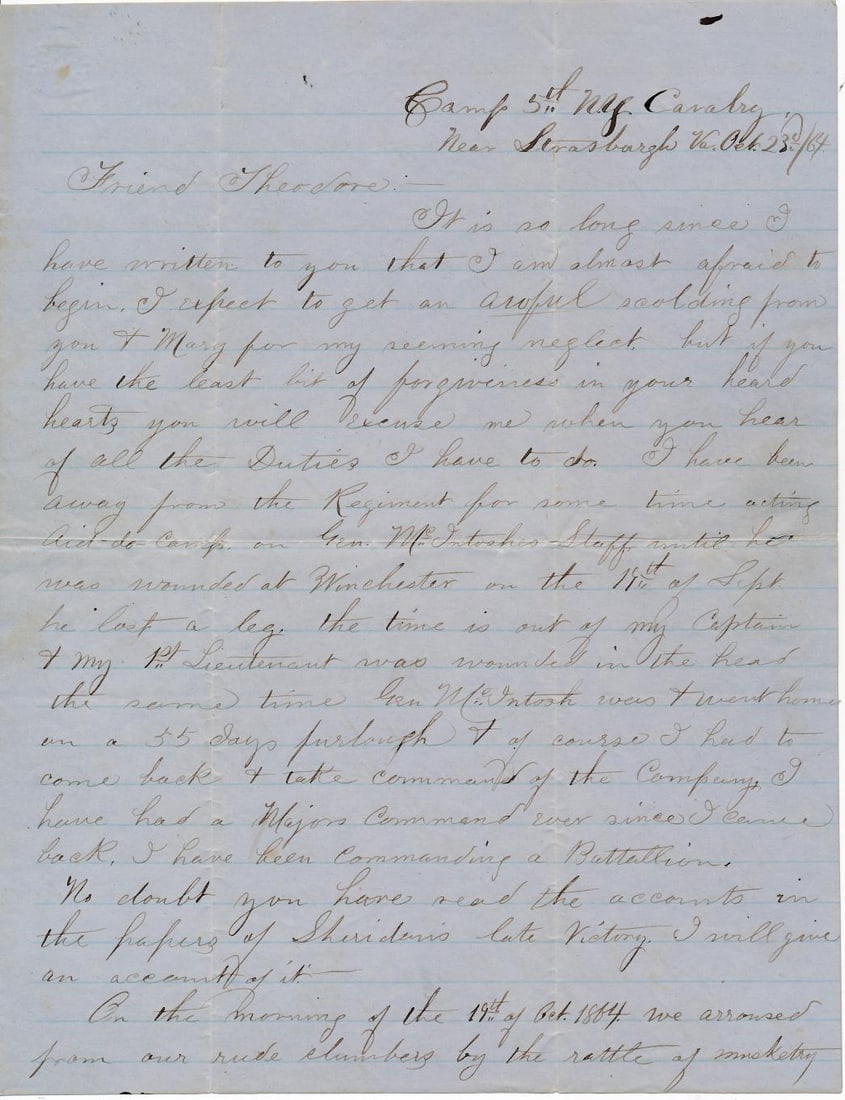 Camp 5th N.Y. Cavalry,
Near Strasburgh Va. Oct. 23d/64
Friend Theodore:—
It is so long since I
have written to you that I am almost afraid to
begin. I expect to get an awful scolding from
you & Mary for my seeming neglect. but if you
have the least bit of forgiveness in your heard
hearts you will Excuse me when you hear
of all the Duties I have to do. I have been
away from the Regiment for some time acting
Aid-do Camp. on Gen. McIntoshes Staff until he
was wounded at Winchester on the 19th of Sept
he lost a leg. the time is out of my Captain
& my 1st Lieutenant was wounded in the head
the same time Gen McIntosh was & went home
on a 55 days furlough & of course I had to
come back & take command of the Company. I
have had a Majors Command ever since I came
back. I have been commanding a Battallion.
No doubt you have read the accounts in
the papers of Sheridan's late Victory. I will give
an account of it.—
On the morning of the 19th of Oct. 1864. we arroused
from our rude slumbers by the rattle of musketry